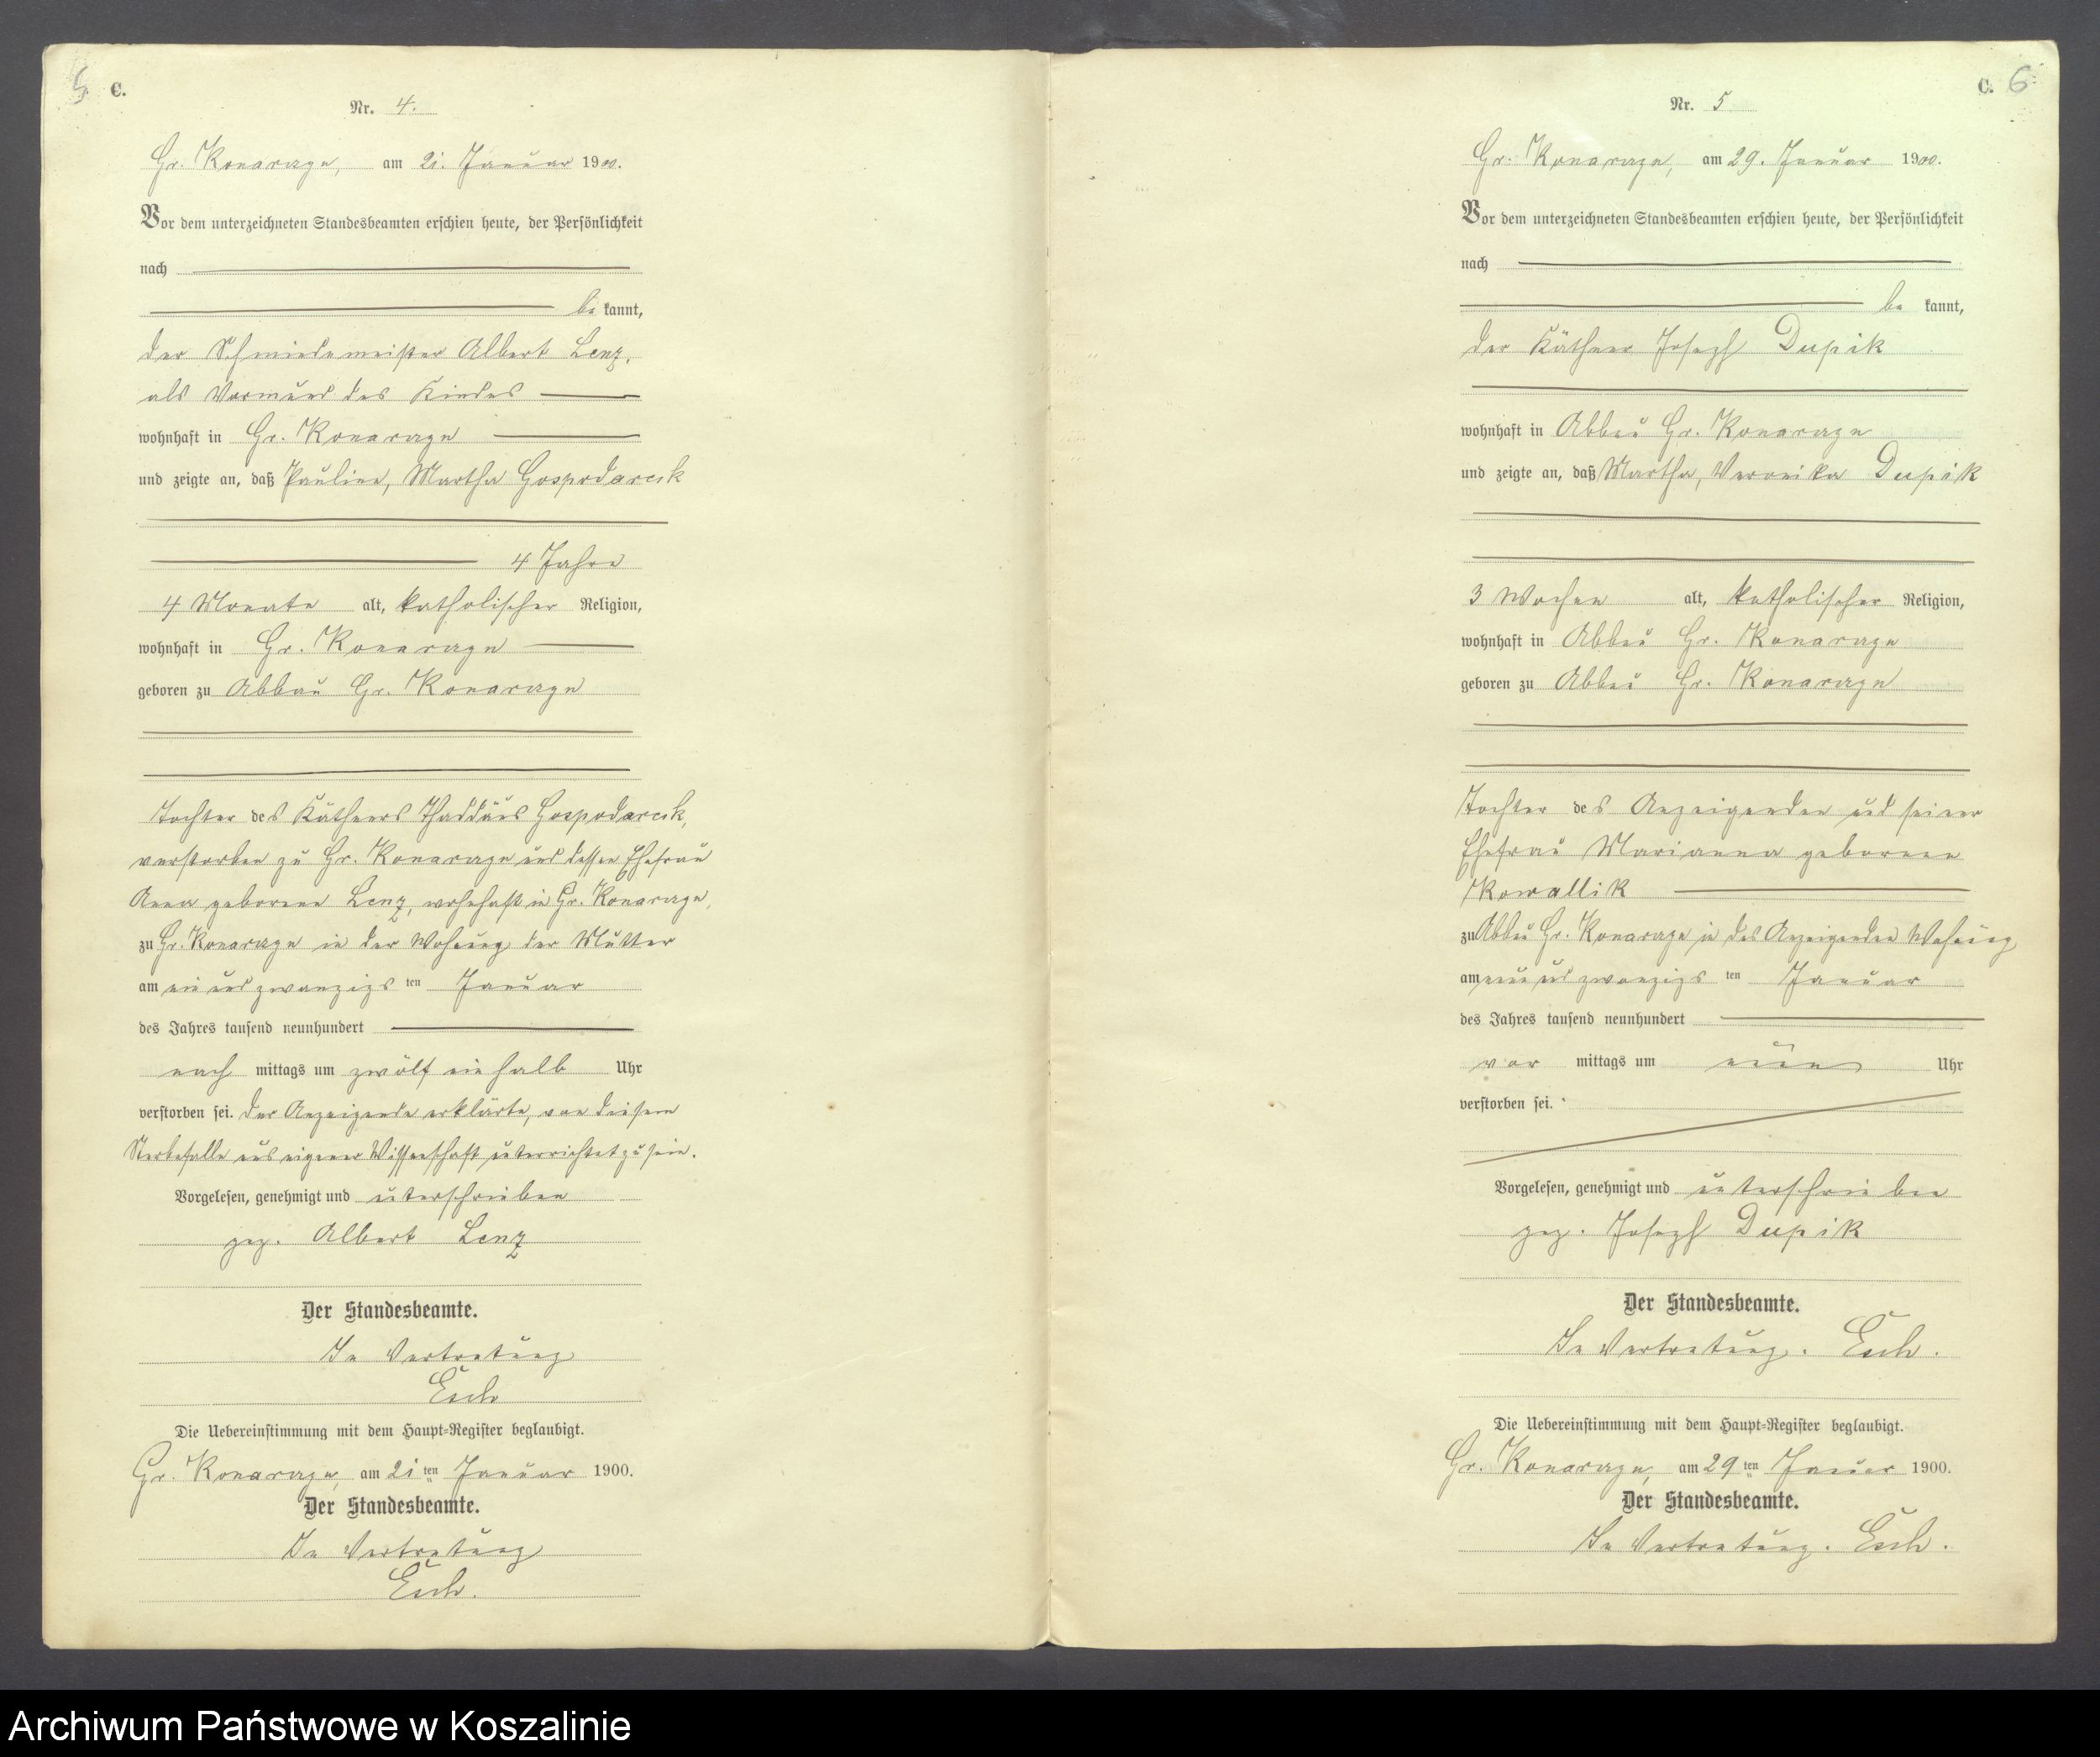 5
C.
Nr. 4.
Gr. Konarczyn, am 21. Januar 1900.
Vor dem unterzeichneten Standesbeamten erschien heute, der Persönlichkeit
nach
be kannt,
der Schmiedemeister Albert Lenz,
als Vormund des Kindes
wohnhaft in Gr. Konarczyn
und zeigte an, daß Pauline, Martha Gospodarek
4 Jahre
4 Monate alt, katholischer Religion,
wohnhaft in Gr. Konarczyn
geboren zu Abbau Gr. Konarczyn
Tochter des Käthners Thaddäus Gospodarek,
verstorben zu Gr. Konarczyn und dessen Ehefrau
Anna geborene Lenz, wohnhaft in Gr. Konarczyn,
zu Gr. Konarczyn in der Wohnung der Mutter
am ein und zwanzigs ten Januar
des Jahres tausend neunhundert
nach mittags um zwölf ein halb Uhr
verstorben sei. Der Anzeigende erklärte, von diesem
Sterbefalle aus eigener Wissenschaft unterrichtet zu sein.
Vorgelesen, genehmigt und unterschrieben
gez. Albert Lenz
Der Standesbeamte.
In Vertretung
Esch
Die Uebereinstimmung mit dem Haupt-Register beglaubigt.
Gr. Konarczyn, am 21 ten Januar 1900.
Der Standesbeamte.
In Vertretung
Esch.
C. 6
Nr. 5
Gr. Konarczyn, am 29. Januar 1900.
Vor dem unterzeichneten Standesbeamten erschien heute, der Persönlichkeit
nach
be kannt,
der Käthner Joseph Dupik
wohnhaft in Abbau Gr. Konarczyn
und zeigte an, daß Martha, Veronika Dupik
3 Wochen alt, katholischer Religion,
wohnhaft in Abbau Gr. Konarczyn
geboren zu Abbau Gr. Konarczyn
Tochter des Anzeigenden und seiner
Ehefrau Marianna geborenen
Kowallik
zu Abbau Gr. Konarczyn in des Anzeigenden Wohnung
am neun und zwanzigs ten Januar
des Jahres tausend neunhundert
vor mittags um neun Uhr
verstorben sei.
Vorgelesen, genehmigt und unterschrieben
gez. Joseph Dupik
Der Standesbeamte.
In Vertretung. Esch.
Die Uebereinstimmung mit dem Haupt-Register beglaubigt.
Gr. Konarczyn, am 29 ten Januar 1900.
Der Standesbeamte.
In Vertretung. Esch.
Archiwum Państwowe w Koszalinie